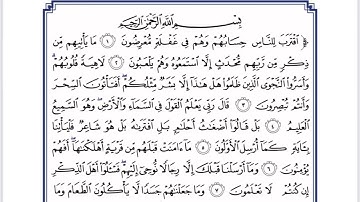 بِسْمِ ٱللَّهِ ٱلرَّحْمَٰنِ ٱلرَّحِيمِ
ٱقْتَرَبَ لِلنَّاسِ حِسَابُهُمْ وَهُمْ فِى غَفْلَةٍ مُّعْرِضُونَ ١ مَا يَأْتِيهِم مِّن
ذِكْرٍ مِّن رَّبِّهِم مُّحْدَثٍ إِلَّا ٱسْتَمَعُوهُ وَهُمْ يَلْعَبُونَ ٢ لَاهِيَةً قُلُوبُهُمْ
وَأَسَرُّوا۟ ٱلنَّجْوَى ٱلَّذِينَ ظَلَمُوا۟ هَلْ هَٰذَآ إِلَّا بَشَرٌ مِّثْلُكُمْ أَفَتَأْتُونَ ٱلسِّحْرَ
وَأَنتُمْ تُبْصِرُونَ ٣ قَالَ رَبِّى يَعْلَمُ ٱلْقَوْلَ فِى ٱلسَّمَآءِ وَٱلْأَرْضِ وَهُوَ ٱلسَّمِيعُ
ٱلْعَلِيمُ ٤ بَلْ قَالُوٓا۟ أَضْغَٰثُ أَحْلَٰمٍۭ بَلِ ٱفْتَرَىٰهُ بَلْ هُوَ شَاعِرٌ فَلْيَأْتِنَا
بِـَٔايَةٍ كَمَآ أُرْسِلَ ٱلْأَوَّلُونَ ٥ مَآ ءَامَنَتْ قَبْلَهُم مِّن قَرْيَةٍ أَهْلَكْنَٰهَآ أَفَهُمْ
يُؤْمِنُونَ ٦ وَمَآ أَرْسَلْنَا قَبْلَكَ إِلَّا رِجَالًا نُّوحِىٓ إِلَيْهِمْ فَسْـَٔلُوٓا۟ أَهْلَ ٱلذِّكْرِ
إِن كُنتُمْ لَا تَعْلَمُونَ ٧ وَمَا جَعَلْنَٰهُمْ جَسَدًا لَّا يَأْكُلُونَ ٱلطَّعَامَ وَمَا